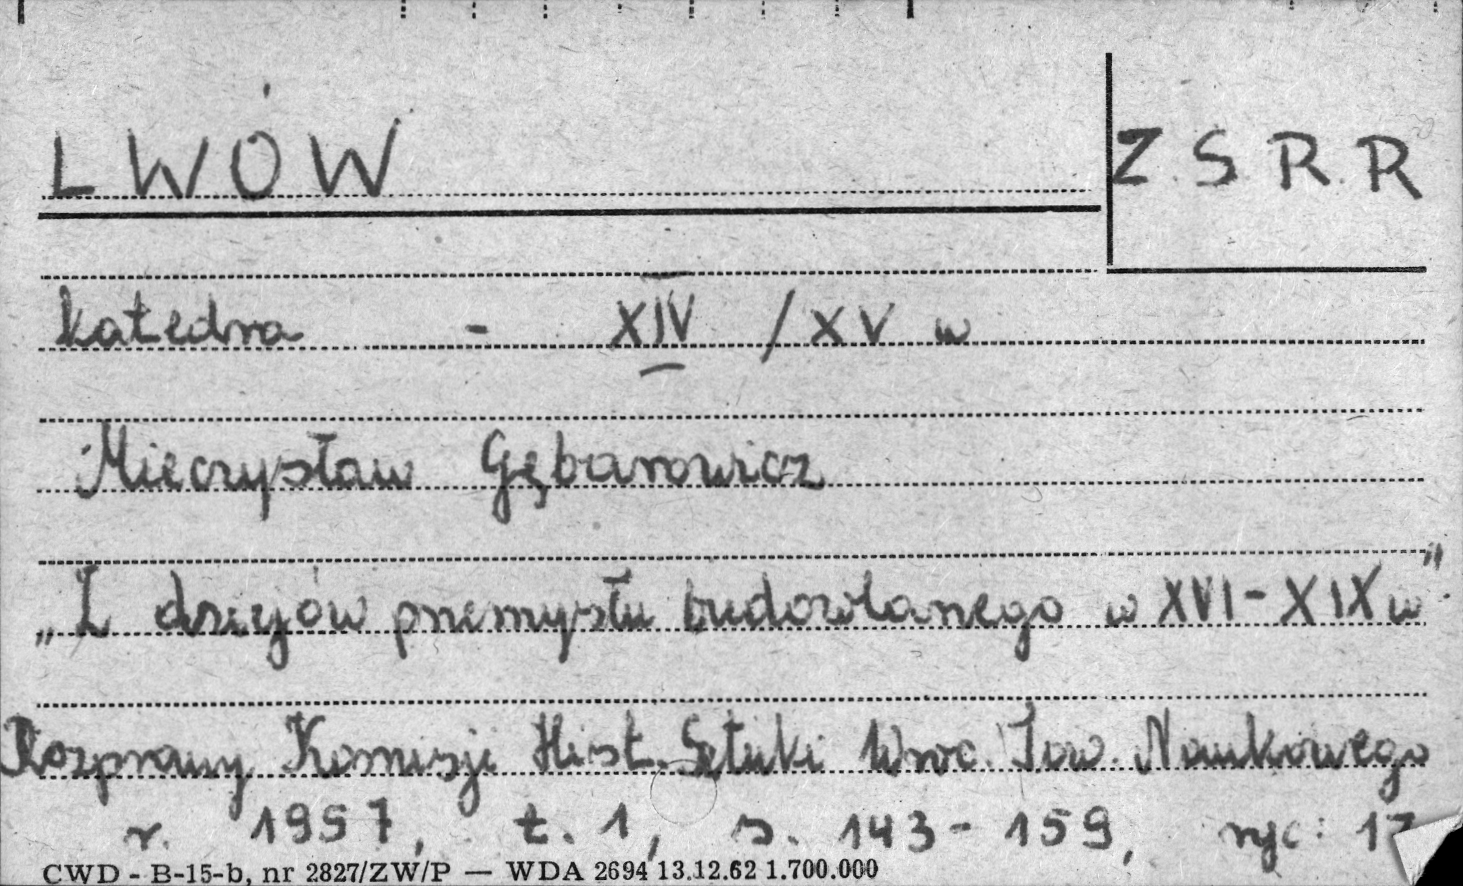 LWÓW
Z.S.R.R
Katedra - XIV / XV w
Mieczysław Gębarowicz
„Z dziejów przemysłu budowlanego w XVI-XIX w"
Rozprawy Komisji Hist. Sztuki Wroc. Tow. Naukowego
r. 1957, t. 1, s. 143-159, ryc: 17
CWD - B-15-b, nr 2827/ZW/P — WDA 2694 13.12.62 1.700.000